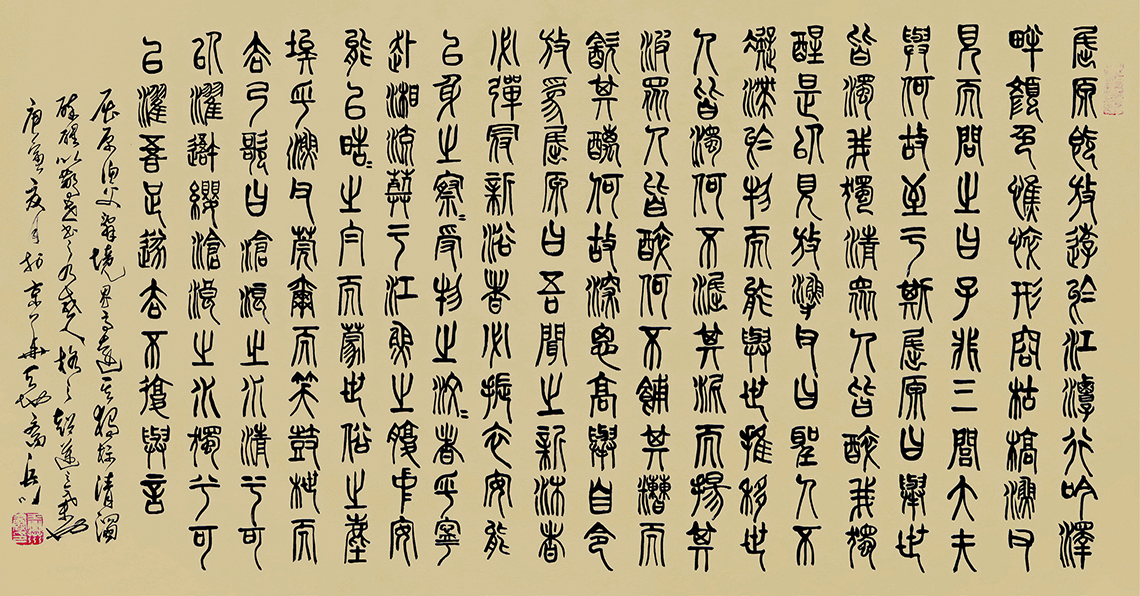 屈原既放遊於江潭行吟澤
畔顏色憔悴形容枯槁漁父
見而問之曰子非三閭大夫
與何故至于斯屈原曰舉世
皆濁我獨清眾人皆醉我獨
醒是以見放漁父曰聖人不
凝滯於物而能與世推移世
人皆濁何不淈其泥而揚其
波眾人皆醉何不餔其糟而
歠其醨何故深思高舉自令
放為屈原曰吾聞之新沐者
必彈冠新浴者必振衣安能
以身之察=受物之汶=者乎寧
赴湘流葬于江魚之腹中安
能以皓=之白而蒙世俗之塵
埃乎漁父莞爾而笑鼓枻而
去乃歌曰滄浪之水清兮可
以濯吾纓滄浪之水濁兮可
以濯吾足遂去不復與言
屈原漁父辭境界高遠其獨標清濁
醉醒以警世人格之超邁
庚寅夏月於京華天地齋